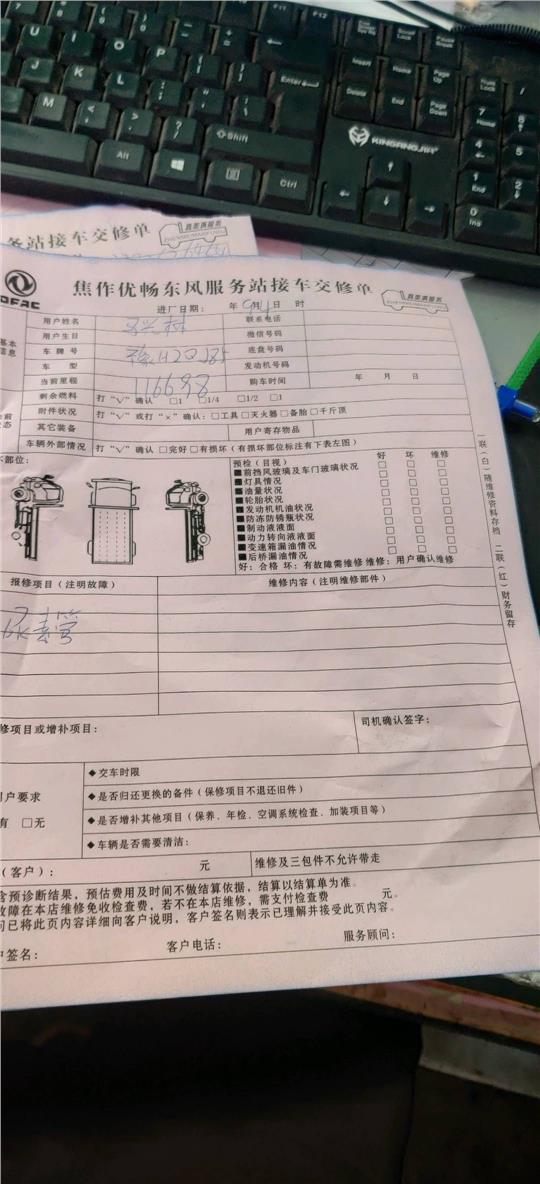 U I O P
F11 F12
J K L Enter
M Shift
Alt Ctrl
Scroll Lock Pause Break
Insert Home Page Up Num Lock /
Delete End Page Down 7 Home
4
KINGANGJIA 1 End 2
0 Ins
务站接车交修单
焦作优畅东风服务站接车交修单
DFAC
进厂日期： 年 月 日 时
用户姓名 联系电话
用户生日 微信号码
车牌号 豫H 底盘号码
车型 发动机号码
当前里程 116698 购车时间 年 月 日
剩余燃料 打“√”确认 □1 □1/4 □1/2 □1
附件状况 打“√”或打“×”确认：□工具 □灭火器 □备胎 □千斤顶
其它装备 用户寄存物品
车辆外部情况 打“√”确认 □完好 □有损坏（有损坏部位标注有下表左图）
部位：
预检（目视） 好 坏 维修
■前挡风玻璃及车门玻璃状况 □ □ □
■灯具情况 □ □ □
■油量状况 □ □ □
■轮胎状况 □ □ □
■发动机机油状况 □ □ □
■防冻防锈瓶状况 □ □ □
■制动液液面 □ □ □
■动力转向液液面 □ □ □
■变速箱漏油情况 □ □ □
■后桥漏油情况 □ □ □
好：合格 坏：有故障需维修 维修：用户确认维修
一联（白）随维修资料存档 二联（红）财务留存
报修项目（注明故障） 维修内容（注明维修部件）
修项目或增补项目： 司机确认签字：
户要求
有 □无
◆交车时限
◆是否归还更换的备件（保修项目不退还旧件）
◆是否增补其他项目（保养、年检、空调系统检查、加装项目等）
◆车辆是否需要清洁：
（客户）： 元 维修及三包件不允许带走
含预诊断结果，预估费用及时间不做结算依据，结算以结算单为准。
故障在本店维修免收检查费，若不在本店维修，需支付检查费 元。
问已将此页内容详细向客户说明，客户签名则表示已理解并接受此页内容。
户签名： 客户电话： 服务顾问：